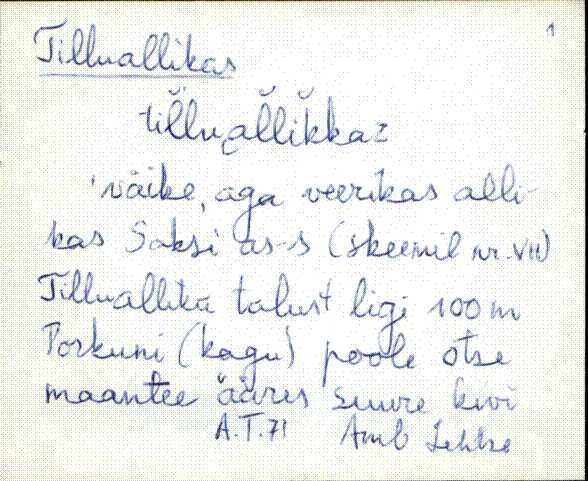 1
Tilluallikas
tĭllŭallĭkkaz
'väike, aga veerikas alli-
kas Saksi as-s (skeemil nr. VII)
Tilluallika talust ligi 100 m
Porkuni (kagu) poole otse
maantee ääres suure kivi
A.T. 71 Amb Lehtse